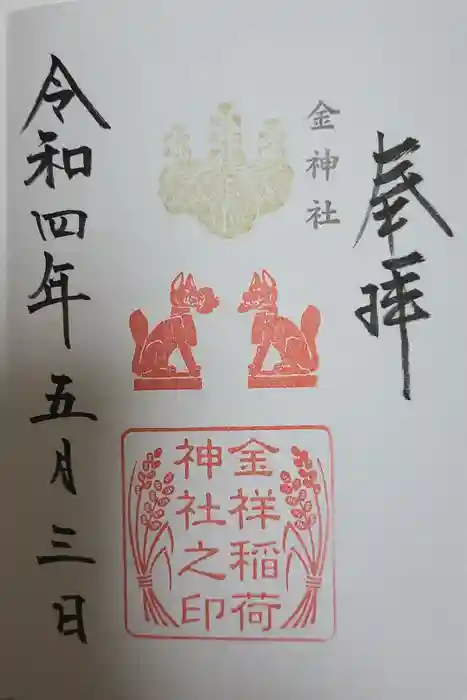 奉拝
金神社
金祥稲荷
神社之印
令和四年五月三日